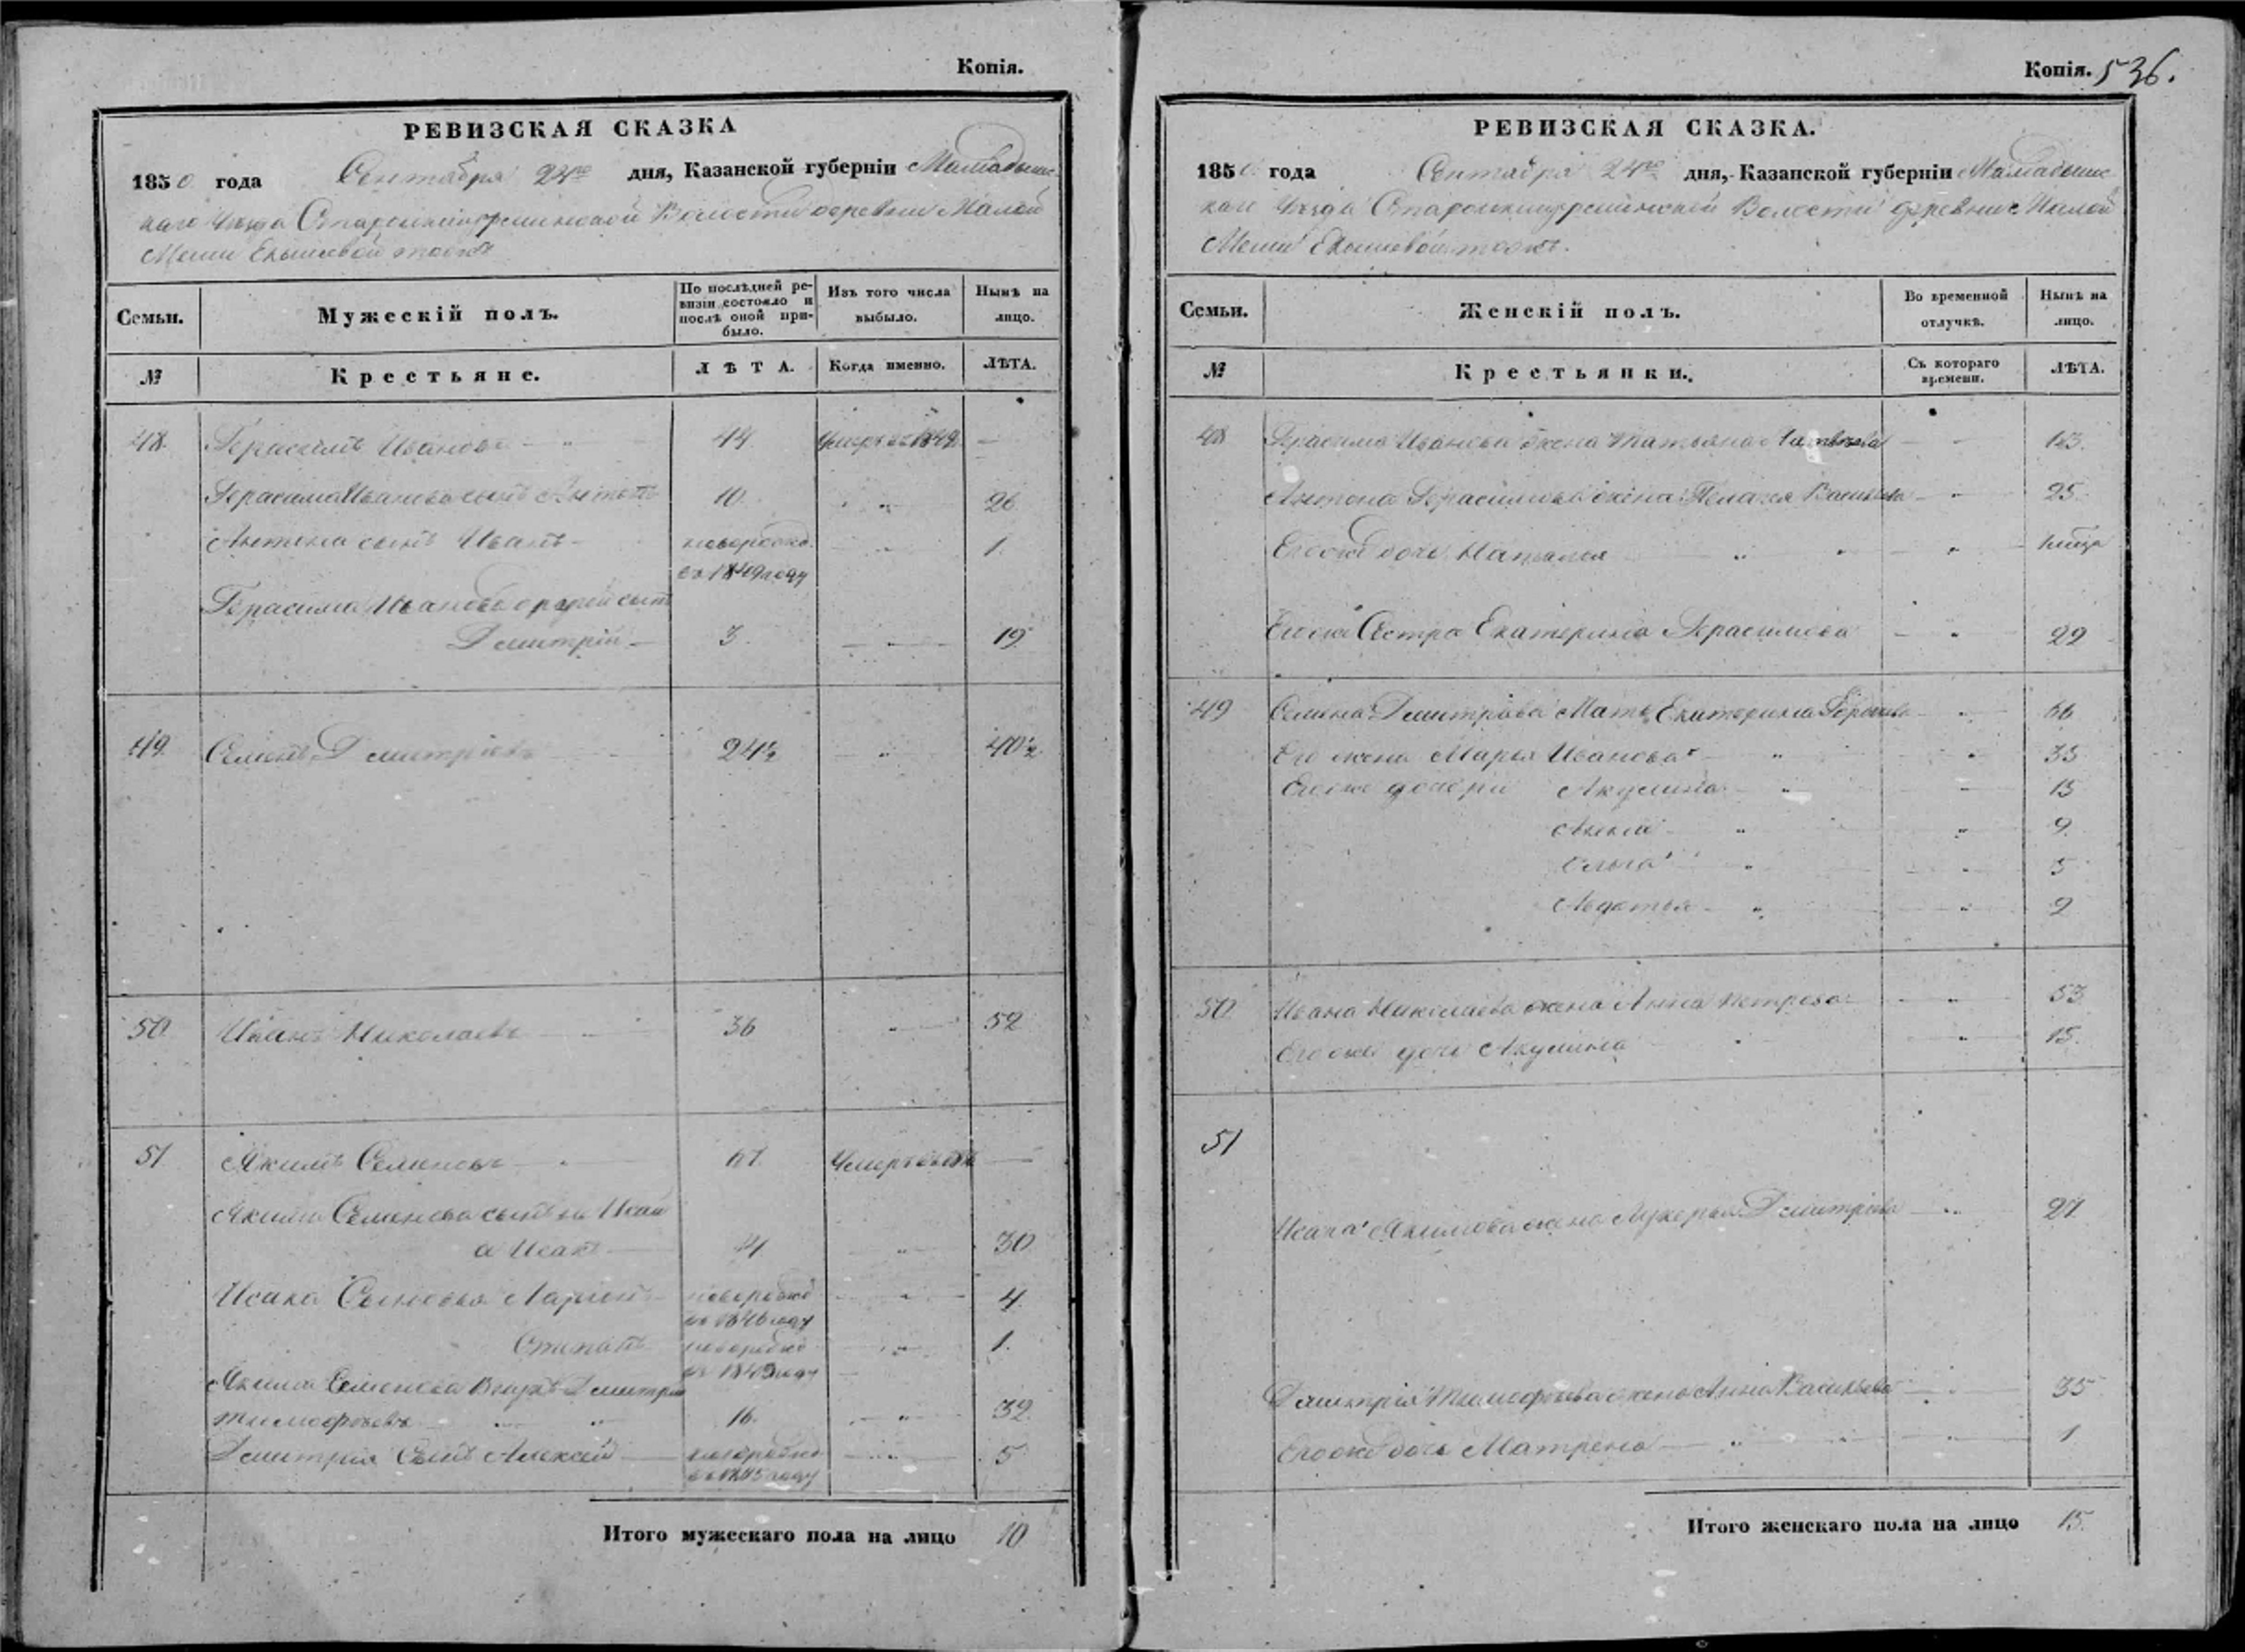 Копія.
РЕВИЗСКАЯ СКАЗКА
1850 года Сентября 24го дня, Казанской губерніи Мамадышс-
каго Уѣзда Волости деревни Малой
Меши Екышевой тожъ
Семьи.
Мужескій полъ.
По послѣдней ре-
визіи состояло и
послѣ оной при-
было.
Изъ того числа
выбыло.
Нынѣ на
лицо.
№
Крестьяне.
ЛѢТА.
Когда именно.
ЛѢТА.
48. Герасимъ Ивановъ — " 44. Умеръ въ 1849 —
Герасима Иванова сынъ Антонъ 10. " 26
Антона сынъ Иванъ — новорожд. " 1.
въ 1849 году
Герасима Иванова другой сынъ
Дмитрій — 3. — 19
49. Семенъ Дмитріевъ 24½ " 40½
50 Иванъ Николаевъ — " 36 " 52
51 Якимъ Семеновъ — " 61. Умеръ —
Якима Семенова сынъ Исай
а Исакъ — " 30
Исака Сыновья Ларіонъ — новорожд " 4
въ 1846 году
Степанъ новорожд " 1.
въ 1849 году
Якима Семенова внукъ Дмитрій
Тимофѣевъ " " 16. " 32.
Дмитрія Сынъ Алексѣй — новорожд — 5
въ 1845 году
Итого мужескаго пола на лицо 10
Копія. 536.
РЕВИЗСКАЯ СКАЗКА.
1850 года Сентября 24го дня, Казанской губерніи Мамадышс-
каго Уѣзда Волости деревни Малой
Меши Екышевой тожъ.
Семьи.
Женскій полъ.
Во временной
отлучкѣ.
Нынѣ на
лицо.
№
Крестьянки.
Съ котораго
времени.
ЛѢТА.
48 Герасима Иванова жена Татьяна — —
Антона Герасимова жена Пелагея Васильева — " 25
Его же дочь Наталья " " — " —
Его же Сестра Екатерина Герасимова — " 22
49 Семена Дмитріева Мать Екатерина — " 66
Его жена Марья Иванова — " " 33
Его же дочери Акулина — " — 15
Анна — " " 9.
Ольга " — " 5
Авдотья — " — " 2
50 Ивана Николаева жена Анна Петрова — " — 53
Его же дочь Акулина " — " 15.
51
Исака Якимова жена Лукерья Дмитріева — " 27
Дмитрія Тимофѣева жена Анна Васильева — " 35
Его же дочь Матрена — " — " — 1
Итого женскаго пола на лицо 15.